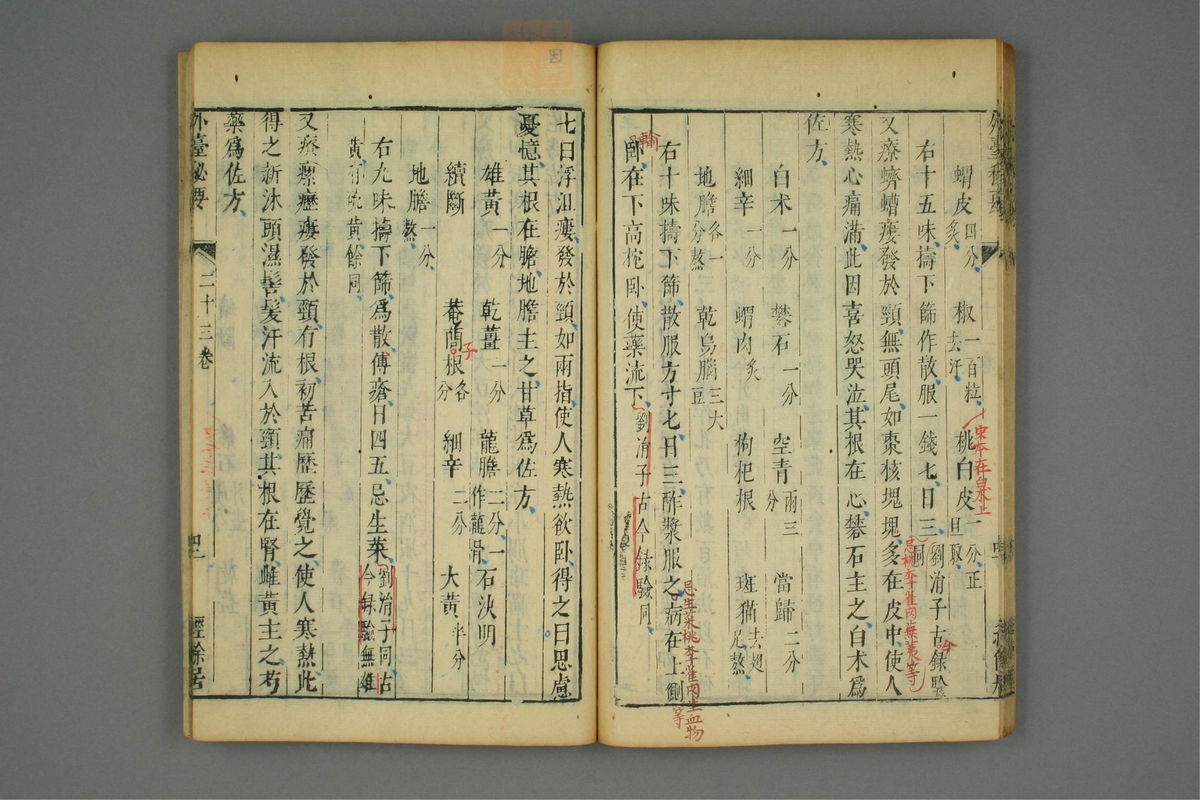 蝟皮四分炙 椒一百粒去汗 桃白皮一分正旦取
右十五味擣下篩作散服一錢匕日三劉涓子古錄驗同
又療蠐螬瘻發於頸無頭尾如棗核塊塊多在皮中使人
寒熱心痛滿此因喜怒哭泣其根在心礬石主之白朮爲
佐方
白朮一分 礬石一分 空青兩三分 當歸二分
細辛一分 蝟肉炙 枸杞根 斑猫去翅足熬
地膽各一分熬 乾烏腦三大豆
右十味擣下篩散服方寸匕日三酢漿服之病在上側
臥在下高枕臥使藥流下劉涓子古今錄驗同
輸
東本在白朮上
今
忌桃李雀肉蕪荑等
忌生菜桃李雀肉生血物等
七日浮沮瘻發於頸如兩指使人寒熱欲臥得之日思慮
憂憶其根在膽地膽主之甘草爲佐方
雄黃一分 乾薑一分 龍膽二分一作龍骨 石決明
續斷 菴䕡根各一分 細辛二分 大黃半分
子
地膽一分熬
右九味擣下篩爲散傅瘡日四五忌生菜劉涓子同古今錄驗無雄
黃有硫黃餘同
又療瘰癧瘻發於頸有根初苦痛歷歷覺之使人寒熱此
得之新沐頭濕髻髮汗流入於頸其根在腎雌黃主之芍
藥爲佐方
外臺秘要 二十三卷 四二 經餘居